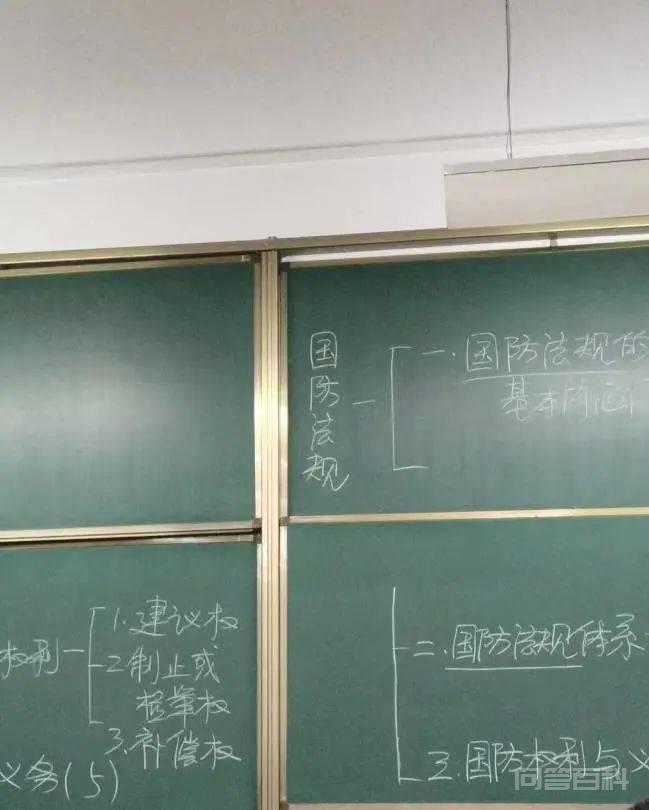 国防法规
一.国防法规的
基本
二.国防法规体系
三.国防权利与义
权利
1.建议权
2.制止或
检举权
3.补偿权
义务(5)
问答百科